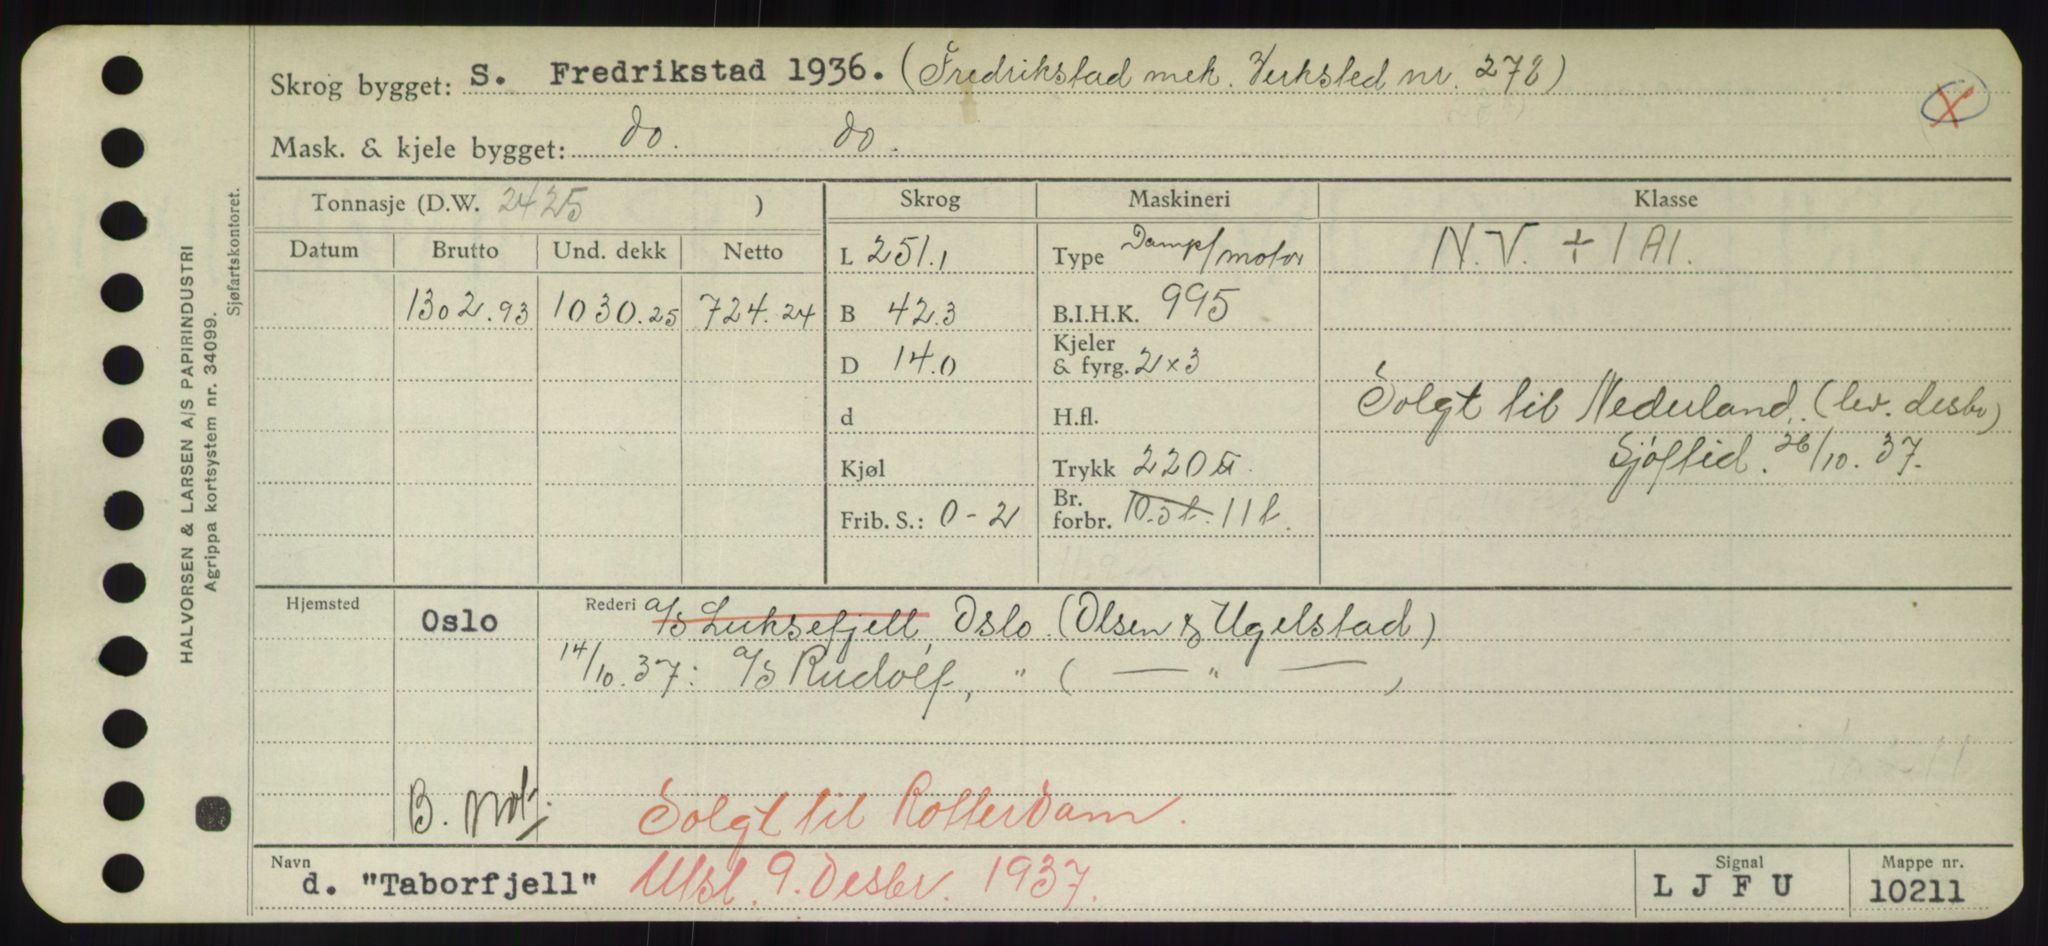 Skrog bygget: S. Fredrikstad 1936. (Fredrikstad mek. Verksted nr. 278)
X
Mask. & kjele bygget: do. do.
Tonnasje (D.W. 2425 )
Skrog
Maskineri
Klasse
Datum
Brutto
Und. dekk
Netto
L 251.1
Type Damp/motor
N.V. + 1A1.
1302.93
1030.25
724.24
B 42.3
B.I.H.K. 995
D 14.0
Kjeler
& fyrg. 2x3
Solgt til Nederland, (lev. desbr)
d
H.fl.
Sjøftid. 26/10.37.
Kjøl
Trykk 220
Frib. S.: 0-2
Br.
forbr. 10.5t. 11t.
Hjemsted
Oslo
Rederi A/S Luksefjell, Oslo (Olsen & Ugelstad)
14/10.37: A/S Rudolf, " ( — " — )
B. not.
Solgt til Rotterdam.
Navn
d. "Taborfjell"
Utsl. 9. Desbr. 1937.
Signal
L J F U
Mappe nr.
10211
HALVORSEN & LARSEN A/S PAPIRINDUSTRI
Agrippa kortsystem nr. 34099.
Sjøfartskontoret.